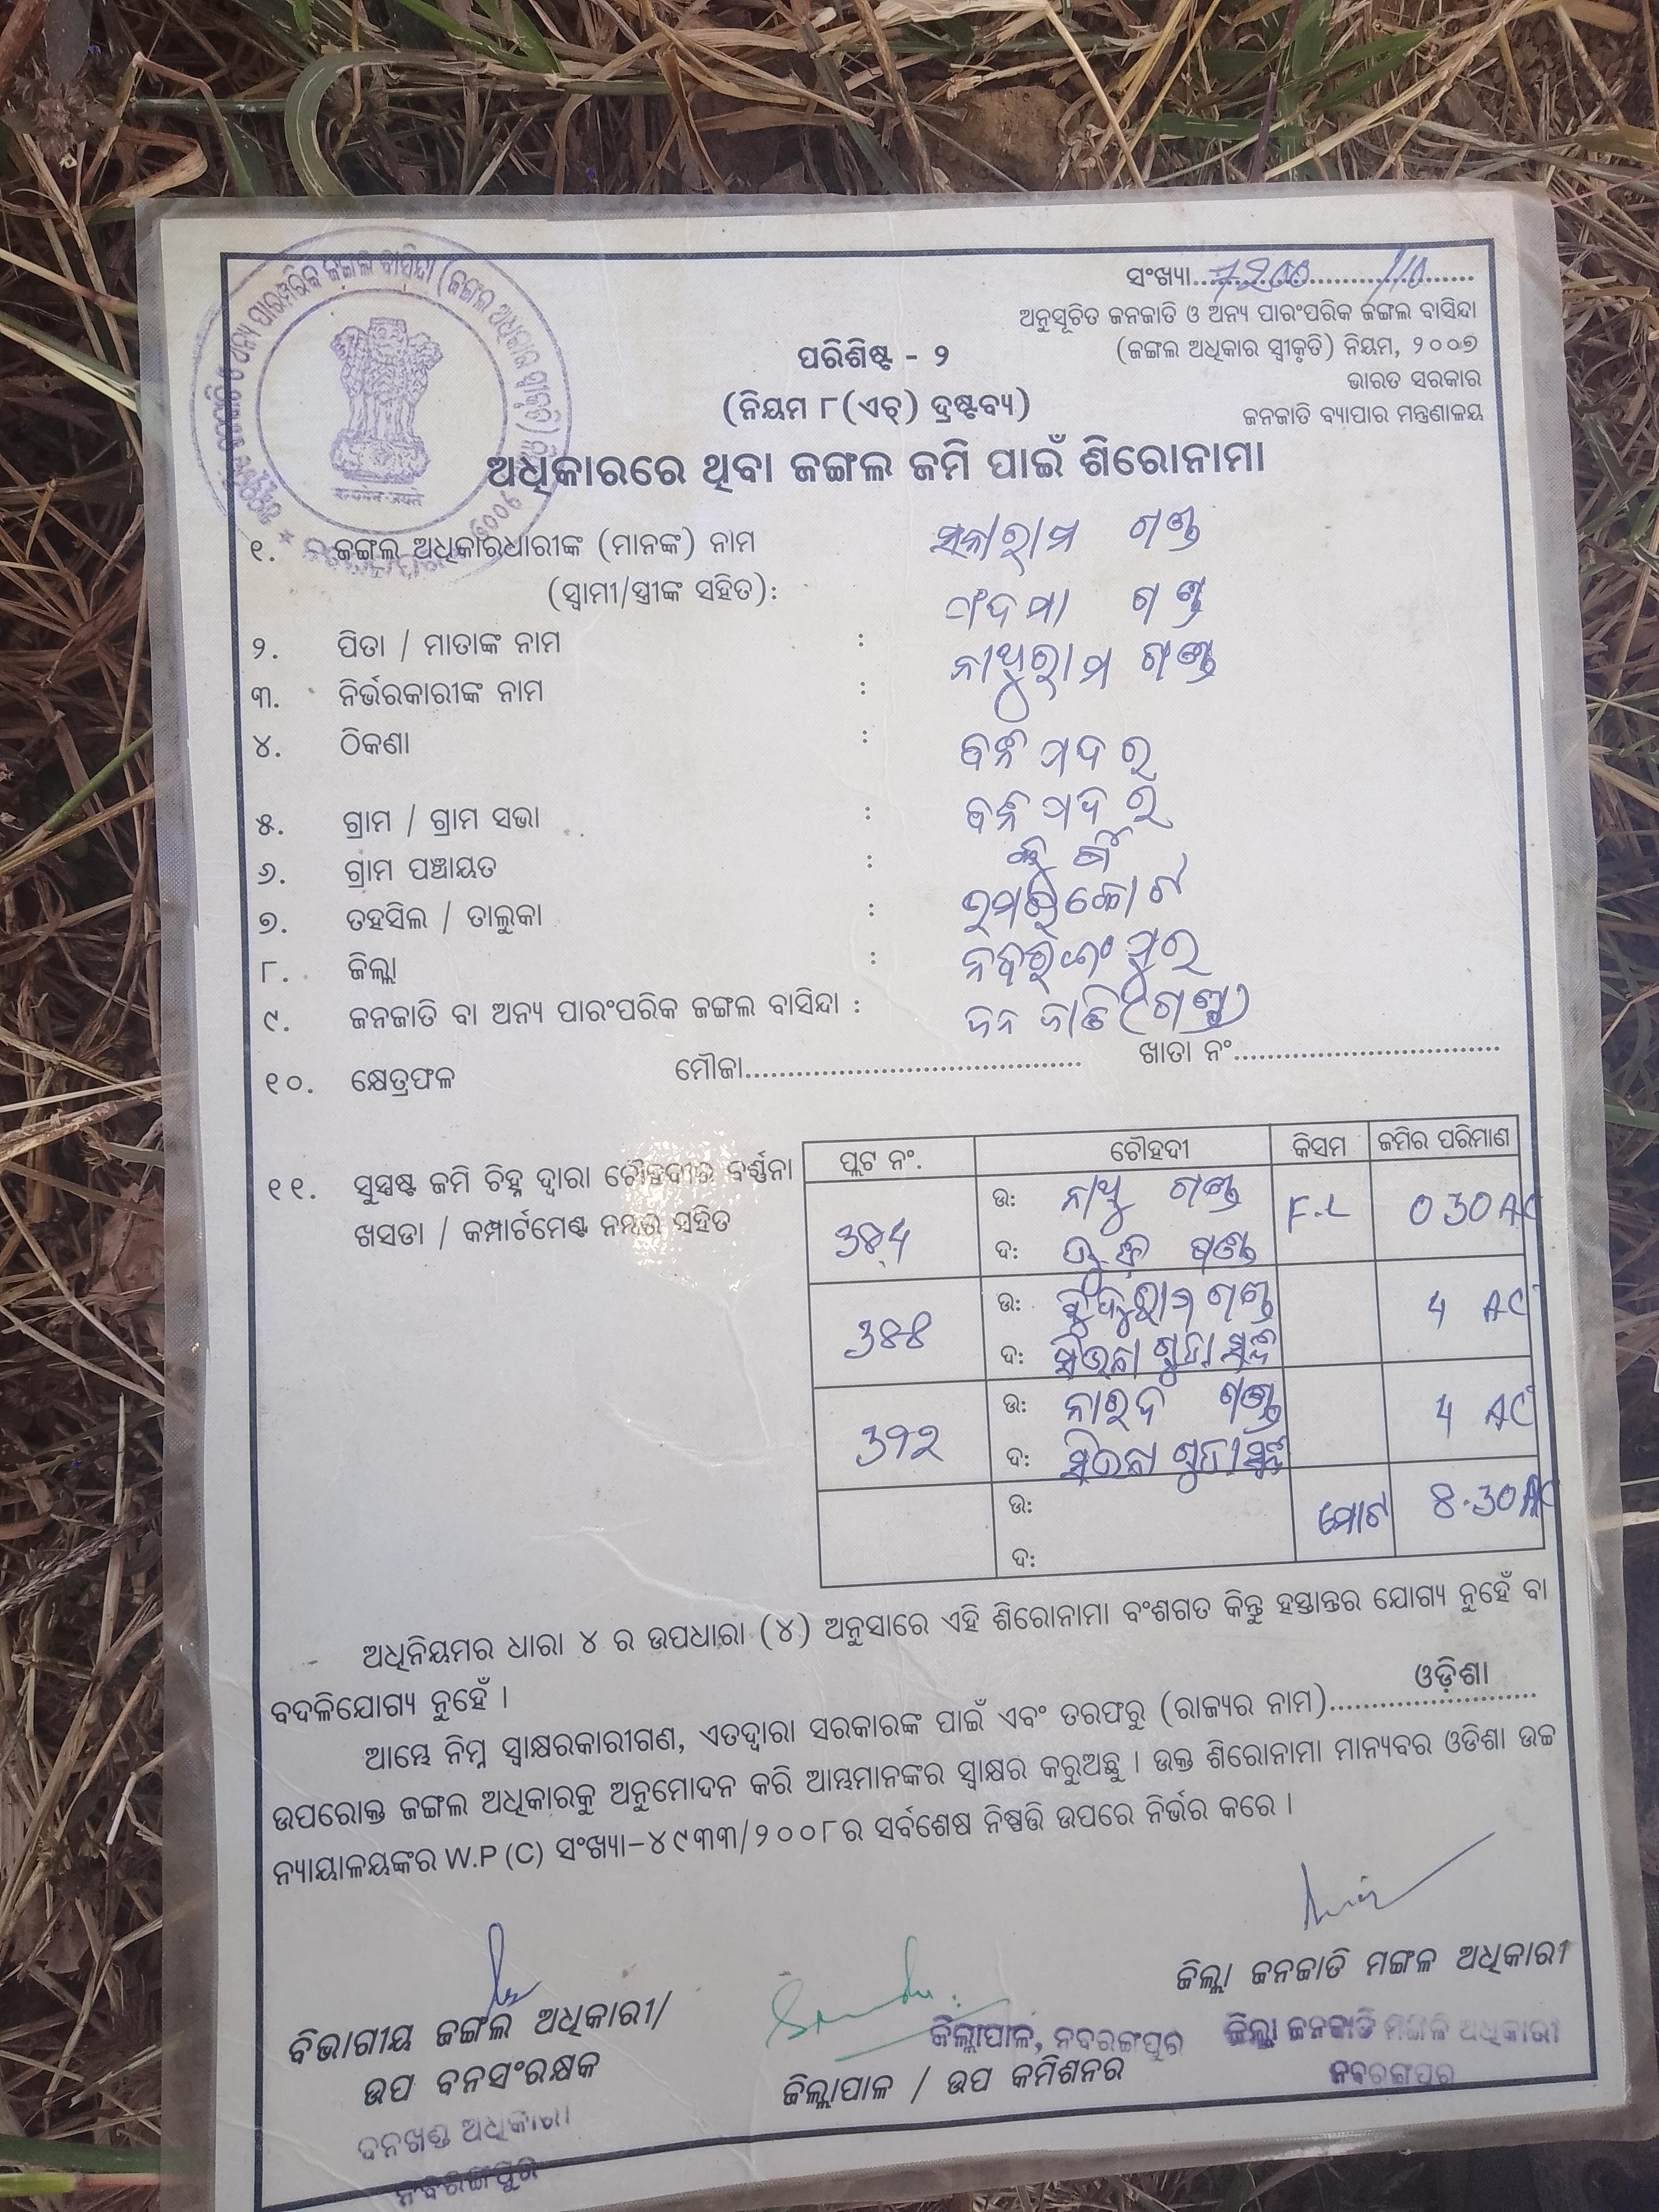 ସଂଖ୍ୟା....7200........./10......
ଅନୁସୂଚିତ ଜନଜାତି ଓ ଅନ୍ୟ ପାରଂପରିକ ଜଙ୍ଗଲ ବାସିନ୍ଦା
(ଜଙ୍ଗଲ ଅଧିକାର ସ୍ୱୀକୃତି) ନିୟମ, ୨୦୦୭
ଭାରତ ସରକାର
ଜନଜାତି ବ୍ୟାପାର ମନ୍ତ୍ରଣାଳୟ
ପରିଶିଷ୍ଟ - ୨
(ନିୟମ ୮(ଏଚ୍) ଦ୍ରଷ୍ଟବ୍ୟ)
ଅଧିକାରରେ ଥିବା ଜଙ୍ଗଲ ଜମି ପାଇଁ ଶିରୋନାମା
୧. ଜଙ୍ଗଲ ଅଧିକାରଧାରୀଙ୍କ (ମାନଙ୍କ) ନାମ ସକାରାମ ଗଣ୍ଡ
(ସ୍ୱାମୀ/ସ୍ତ୍ରୀଙ୍କ ସହିତ): ଗଣ୍ଡ
୨. ପିତା / ମାତାଙ୍କ ନାମ : ନାଥୁରାମ ଗଣ୍ଡ
୩. ନିର୍ଭରକାରୀଙ୍କ ନାମ :
୪. ଠିକଣା :
୫. ଗ୍ରାମ / ଗ୍ରାମ ସଭା :
୬. ଗ୍ରାମ ପଞ୍ଚାୟତ :
୭. ତହସିଲ / ତାଲୁକା : ଉମରକୋଟ
୮. ଜିଲ୍ଲା : ନବରଙ୍ଗପୁର
୯. ଜନଜାତି ବା ଅନ୍ୟ ପାରଂପରିକ ଜଙ୍ଗଲ ବାସିନ୍ଦା : ଜନଜାତି (ଗଣ୍ଡ)
୧୦. କ୍ଷେତ୍ରଫଳ ମୌଜା............ ଖାତା ନଂ............
୧୧. ସୁସ୍ପଷ୍ଟ ଜମି ଚିହ୍ନ ଦ୍ୱାରା ଚୌହଦୀର ବର୍ଣ୍ଣନା
ଖସଡା / କମ୍ପାର୍ଟମେଣ୍ଟ ନମ୍ବର ସହିତ
ପ୍ଲଟ ନଂ. ଚୌହଦୀ କିସମ ଜମିର ପରିମାଣ
ଉ: ନାଥୁ ଗଣ୍ଡ F.L 0 30 AC
ଦ: ଗଣ୍ଡ
ଉ: ଗଣ୍ଡ 4 AC
ଦ:
ଉ: ନାରଦ ଗଣ୍ଡ 4 AC
ଦ:
ଉ: ମୋଟ 8.30 AC
ଦ:
ଅଧିନିୟମର ଧାରା ୪ ର ଉପଧାରା (୪) ଅନୁସାରେ ଏହି ଶିରୋନାମା ବଂଶଗତ କିନ୍ତୁ ହସ୍ତାନ୍ତର ଯୋଗ୍ୟ ନୁହେଁ ବା
ବଦଳିଯୋଗ୍ୟ ନୁହେଁ ।
ଆମ୍ଭେ ନିମ୍ନ ସ୍ୱାକ୍ଷରକାରୀଗଣ, ଏତଦ୍ୱାରା ସରକାରଙ୍କ ପାଇଁ ଏବଂ ତରଫରୁ (ରାଜ୍ୟର ନାମ).......ଓଡ଼ିଶା......
ଉପରୋକ୍ତ ଜଙ୍ଗଲ ଅଧିକାରକୁ ଅନୁମୋଦନ କରି ଆମ୍ଭମାନଙ୍କର ସ୍ୱାକ୍ଷର କରୁଅଛୁ । ଉକ୍ତ ଶିରୋନାମା ମାନ୍ୟବର ଓଡିଶା ଉଚ୍ଚ
ନ୍ୟାୟାଳୟଙ୍କର W.P (C) ସଂଖ୍ୟା-୪୯୩୩/୨୦୦୮ର ସର୍ବଶେଷ ନିଷ୍ପତ୍ତି ଉପରେ ନିର୍ଭର କରେ ।
ବିଭାଗୀୟ ଜଙ୍ଗଲ ଅଧିକାରୀ/
ଉପ ବନସଂରକ୍ଷକ
ବନଖଣ୍ଡ ଅଧିକାରୀ
ନବରଙ୍ଗପୁର
ଜିଲ୍ଲାପାଳ, ନବରଙ୍ଗପୁର
ଜିଲ୍ଲାପାଳ / ଉପ କମିଶନର
ଜିଲ୍ଲା ଜନଜାତି ମଙ୍ଗଳ ଅଧିକାରୀ
ଜିଲ୍ଲା ଜନଜାତି ମଙ୍ଗଳ ଅଧିକାରୀ
ନବରଙ୍ଗପୁର